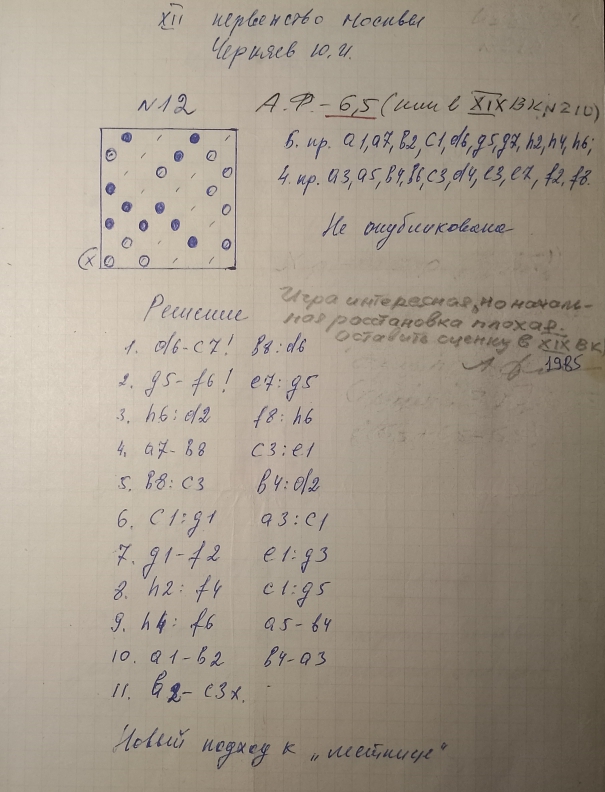 XII первенство Москвы
Черняев Ю.И.
N12 А.Ф. - 6,5 (или в XIX ВК, N210)
Б. пр. a1, a7, b2, c1, d6, g5, g7, h2, h4, h6;
Ч. пр. a3, a5, b4, b8, c3, d4, e3, e7, f2, f8.
Не опубликована
(x)
Решение
Игра интересная, но началь-
ная расстановка плохая.
Оставить оценку в XIX ВК
1985
1. d6-c7! b8:d6
2. g5-f6! e7:g5
3. h6:d2 f8:h6
4. a7-b8 c3:e1
5. b8:c3 b4:d2
6. c1:g1 a3:c1
7. g1-f2 e1:g3
8. h2:f4 c1:g5
9. h4:f6 a5-b4
10. a1-b2 b4-a3
11. b2-c3x.
Новый подход к „лестнице"